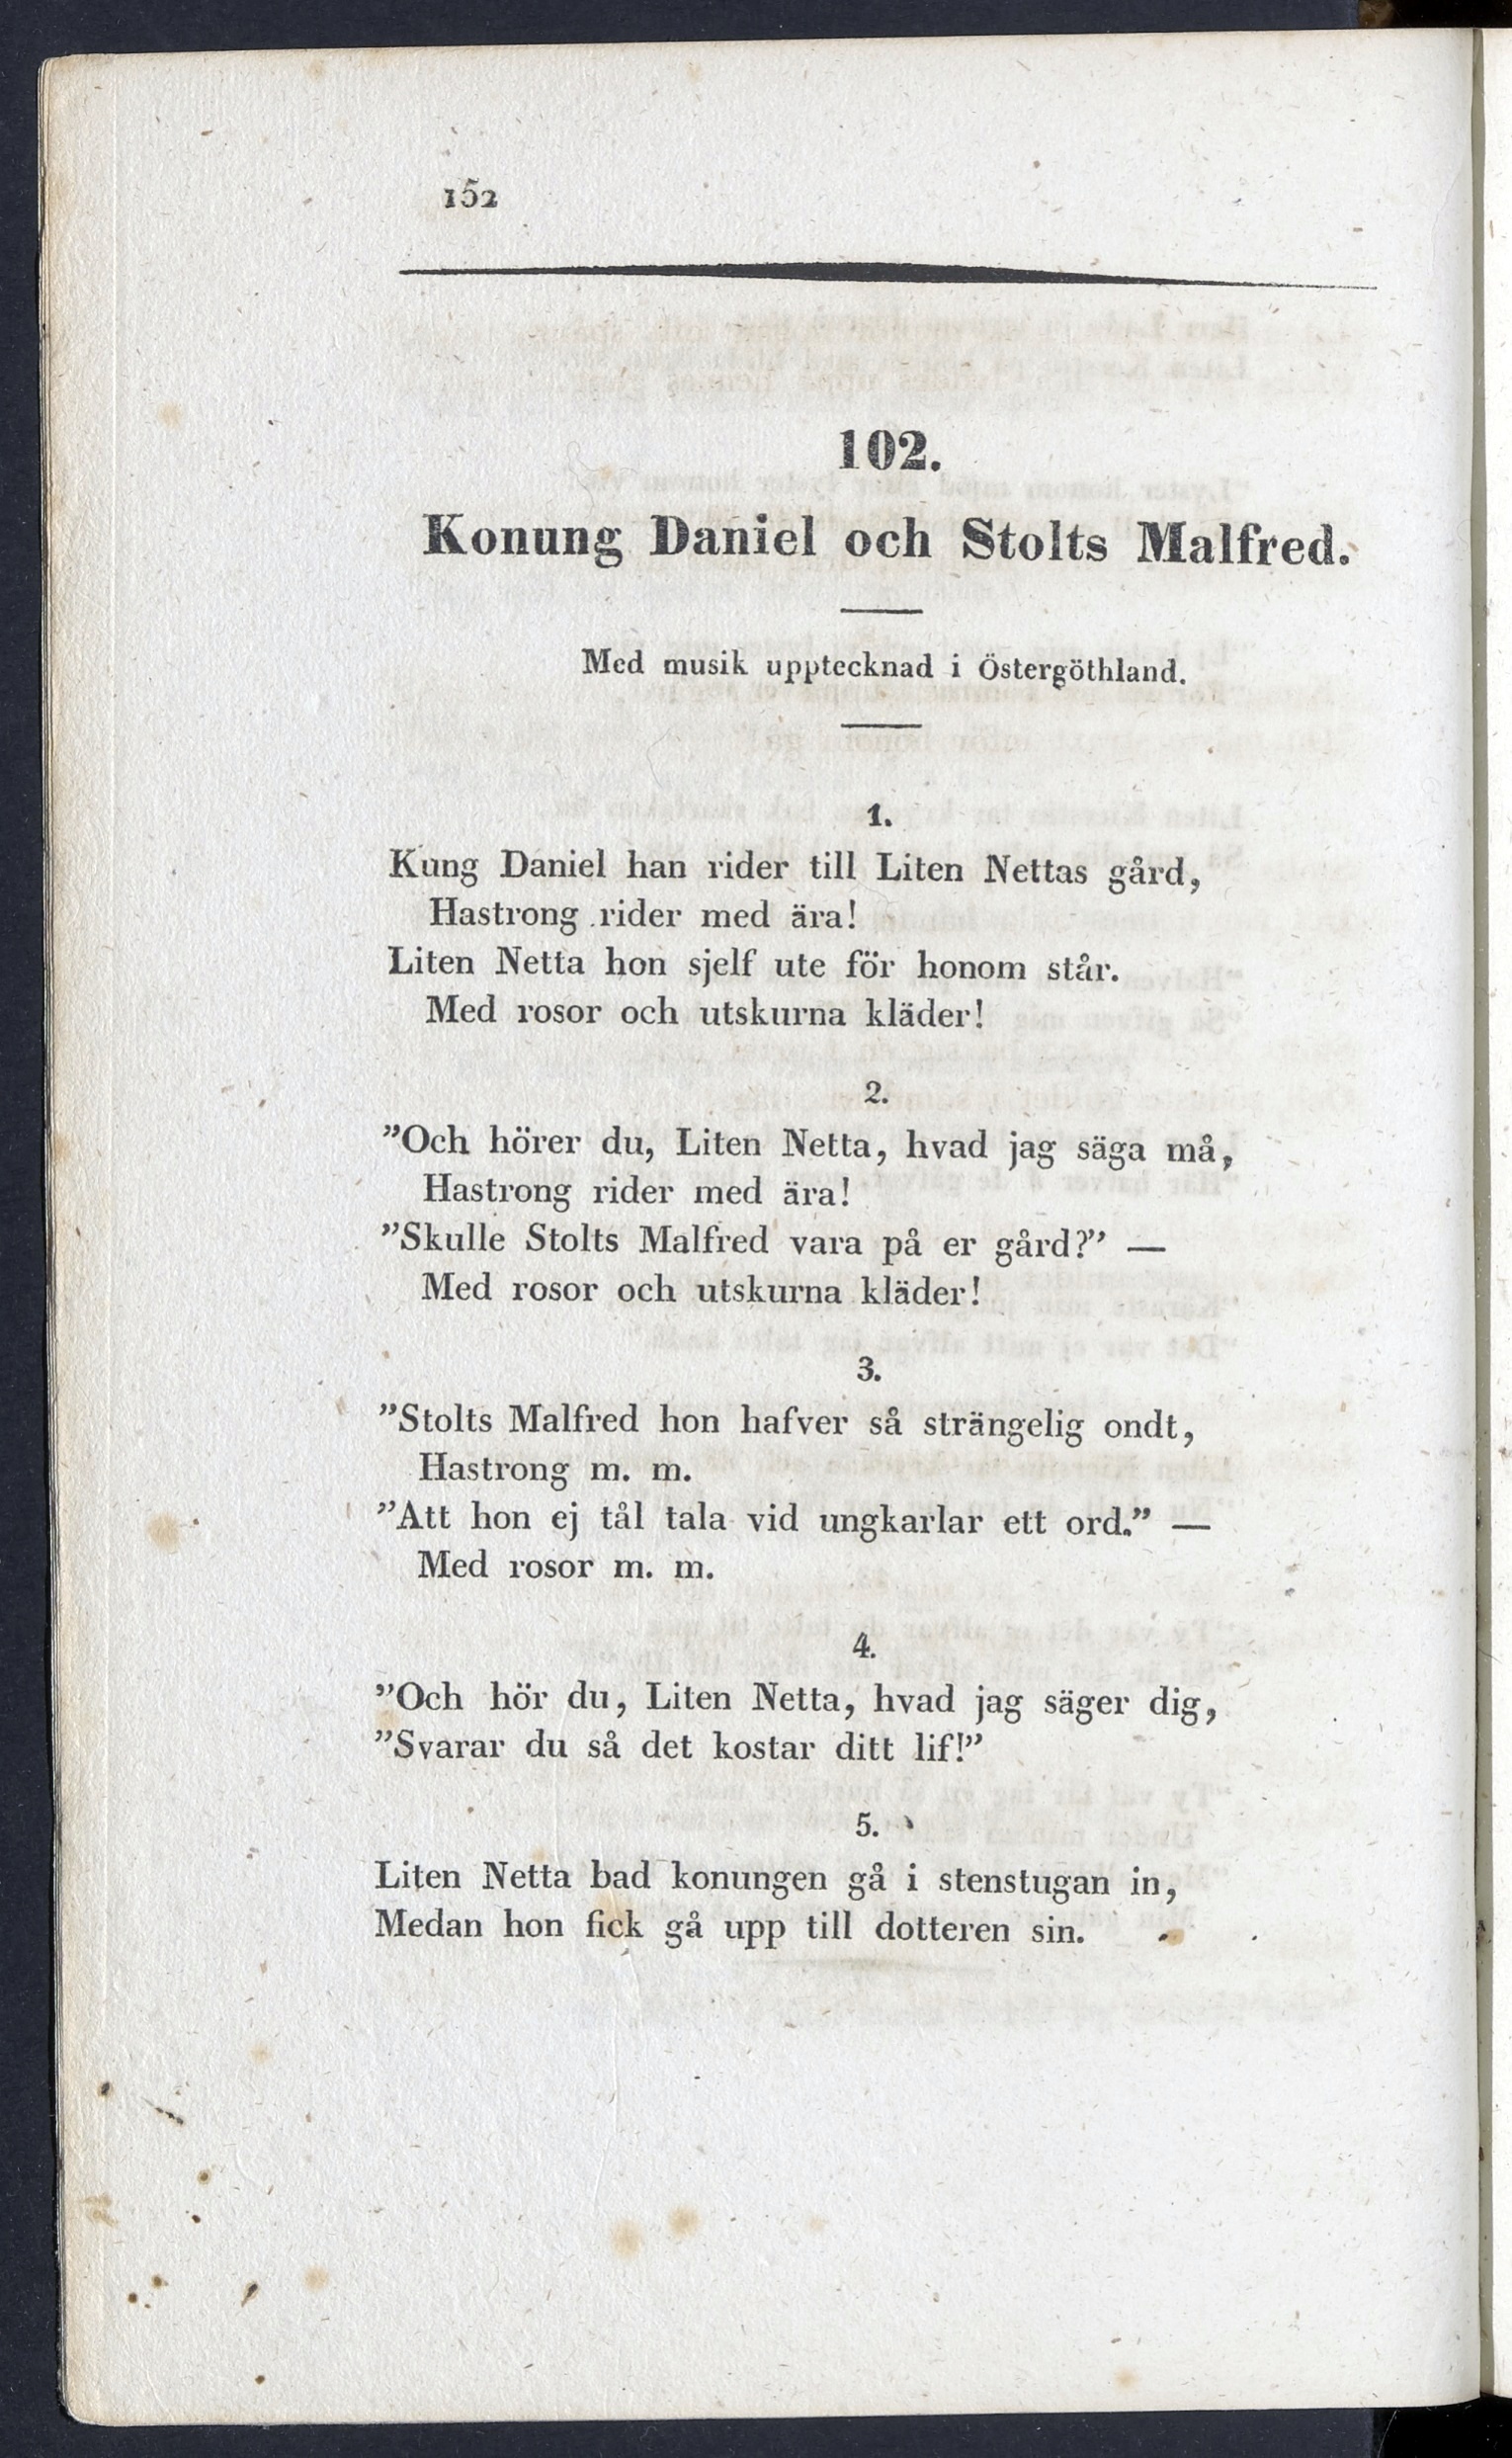 152
102.
Konung Daniel och Stolts Malfred.
Med musik upptecknad i Östergöthland.
1.
Kung Daniel han rider till Liten Nettas gård,
Hastrong rider med ära!
Liten Netta hon sjelf ute för honom står.
Med rosor och utskurna kläder!
2.
”Och hörer du, Liten Netta, hvad jag säga må,
Hastrong rider med ära!
”Skulle Stolts Malfred vara på er gård?” —
Med rosor och utskurna kläder!
3.
”Stolts Malfred hon hafver så strängelig ondt,
Hastrong m. m.
”Att hon ej tål tala vid ungkarlar ett ord.” —
Med rosor m. m.
4.
”Och hör du, Liten Netta, hvad jag säger dig,
”Svarar du så det kostar ditt lif!”
5.
Liten Netta bad konungen gå i stenstugan in,
Medan hon fick gå upp till dotteren sin.